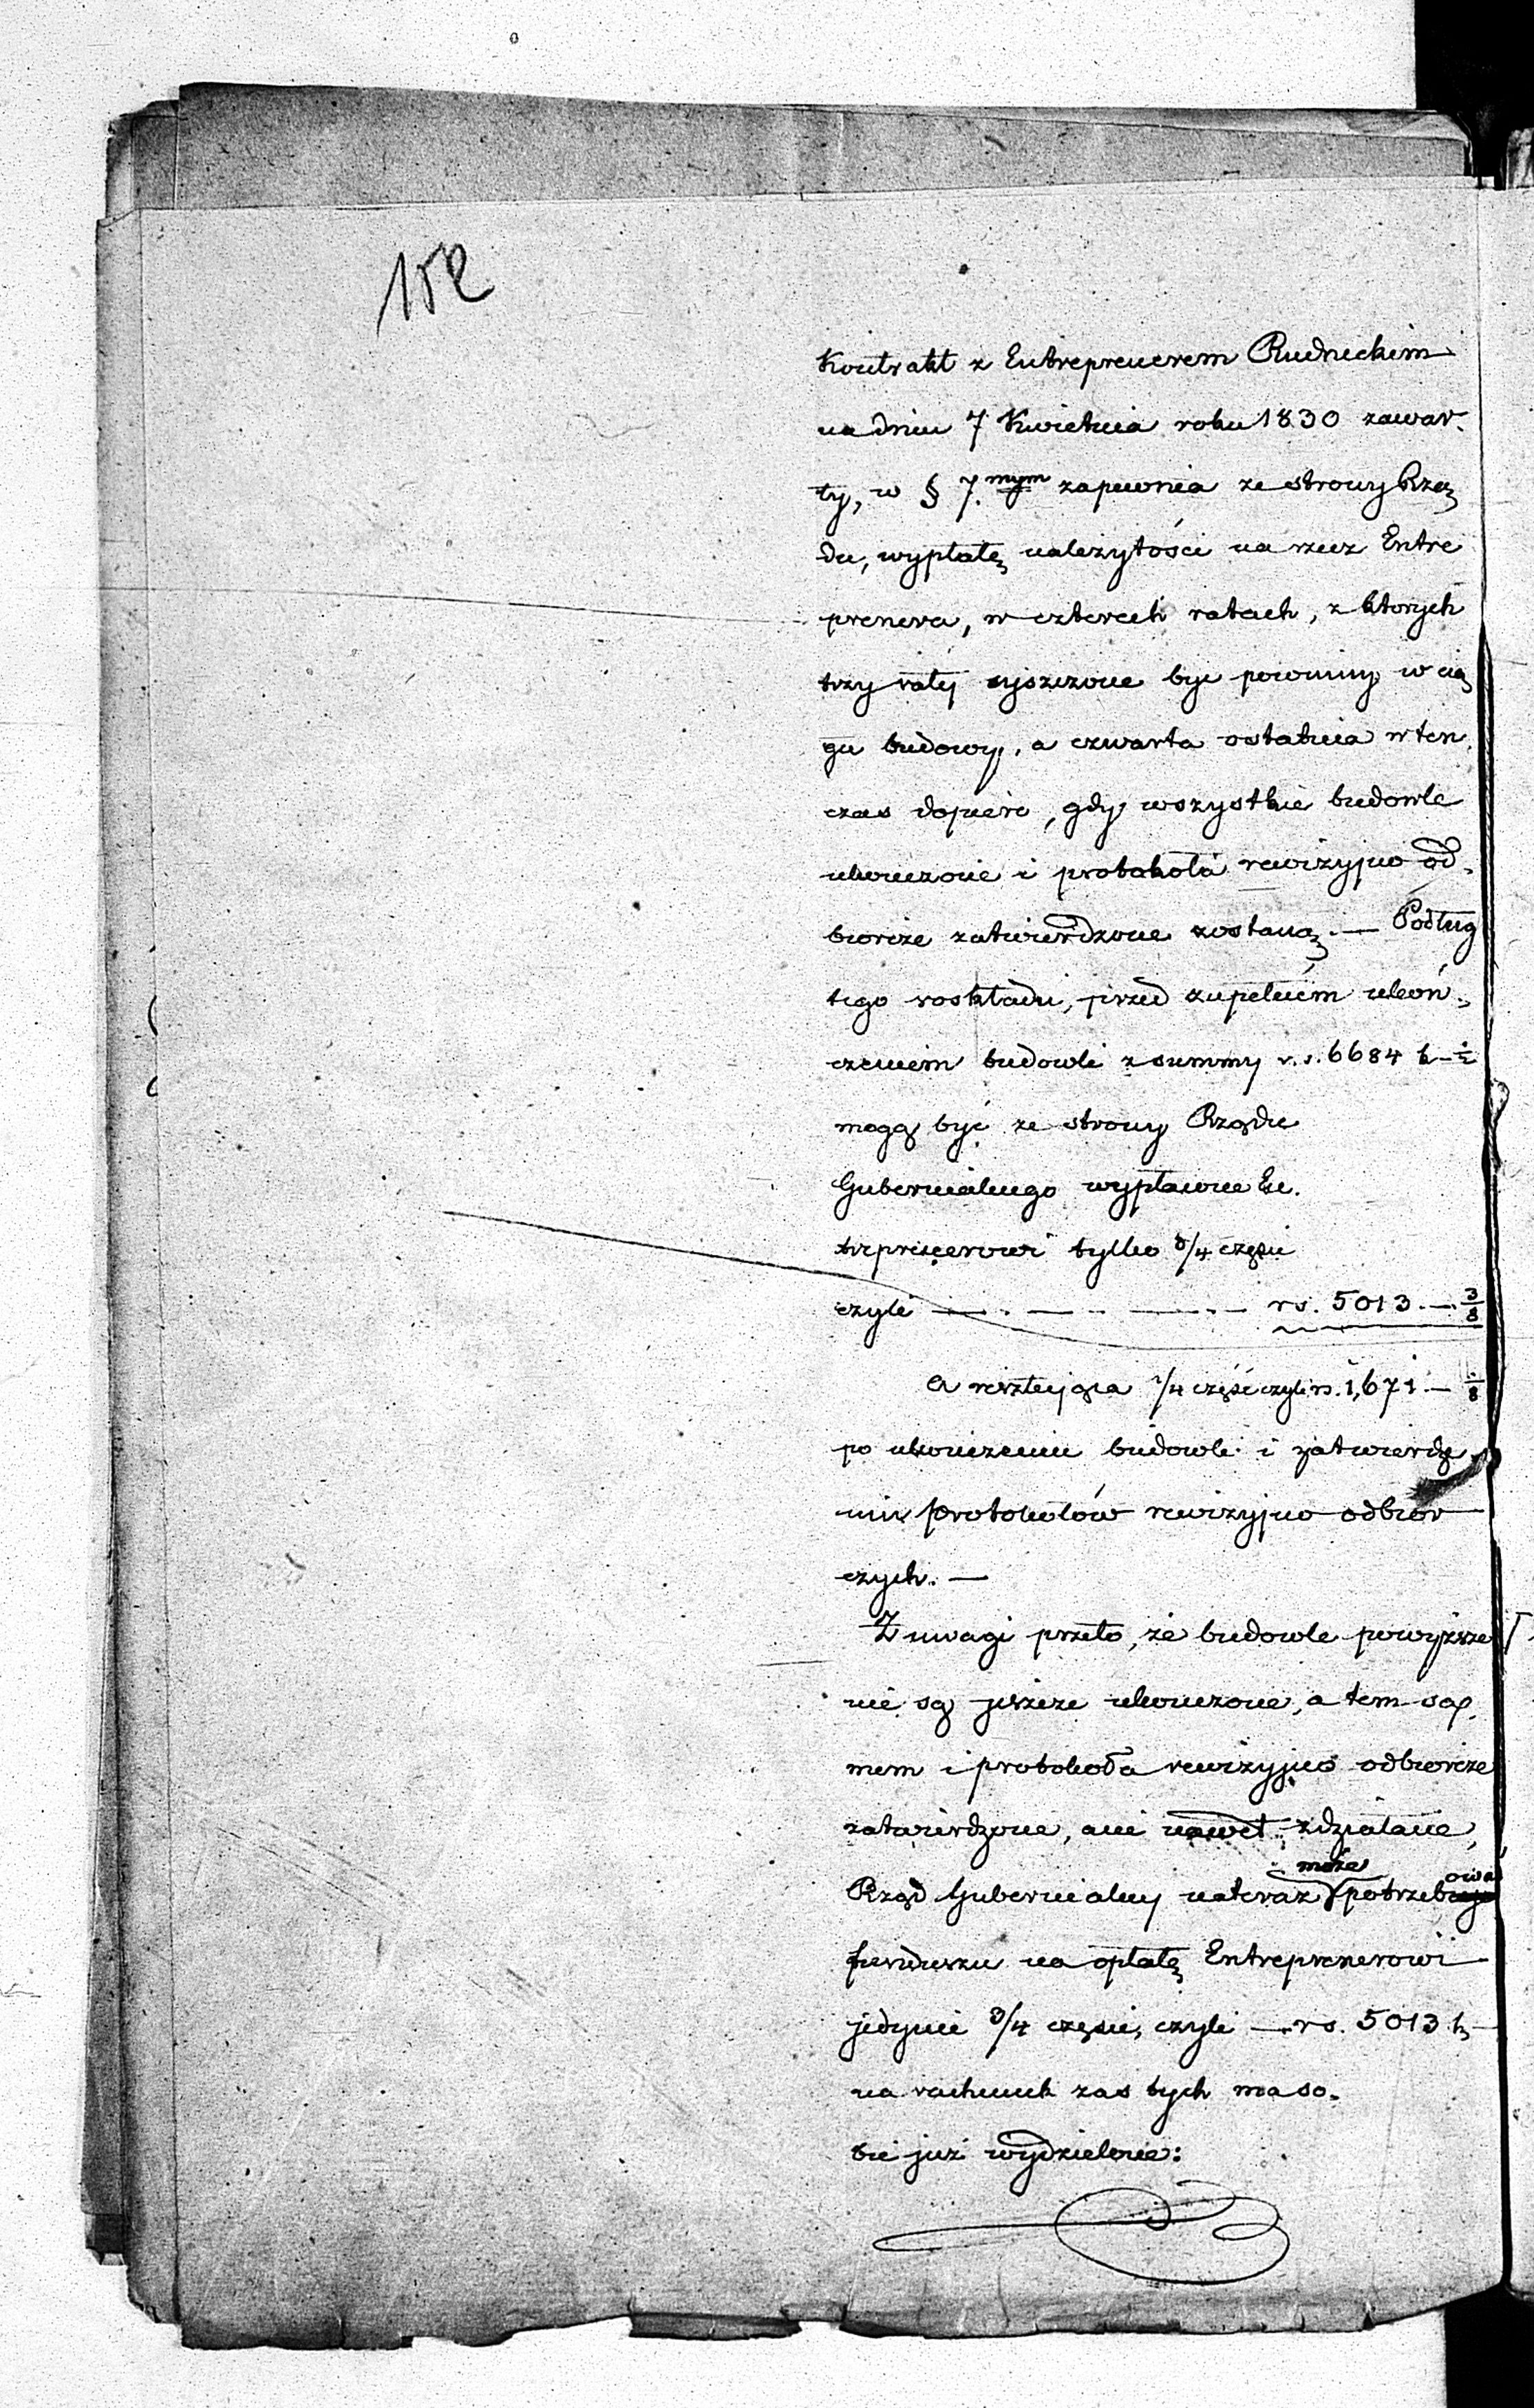 152
Kontrakt z Entreprenerem Rudneckim
na dniu 7 Kwietnia roku 1830 zawar-
ty, w § 7.mym zapewnia ze strony Rzą
du, wypłatę należytości na rzecz Entre
prenera, w czterech ratach, z ktorych
trzy raty być powinny w cią
gu budowy, a czwarta ostatnia wten
czas dopiero, gdy wszystkie budowle
ukończone i protokoła rewizyjno od-
biorcze zatwierdzone zostaną. — Podług
tego roskładu, przed zupełném ukoń-
czeniem budowli z summy r.s. 6684 k - ½
mogą być ze strony Rządu
Gubernialnego wypłacone En-
treprenerowi tylko 3/4 części
czyli — . — . . — . — rs. 5013 . — . 3/8
A resztująca 1/4 część czyli rs. 1,671 — 1/8
po ukończeniu budowli i zatwierdze
niu Protokołów rewizyjno odbior
czych. —
Z uwagi przeto, że budowle powyższe
nie są jeszcze ukończone, a tem sa-
mem i protokoła rewizyjno odbiorcze
zatwierdzone, ani nawet zdziałane,
Rząd Gubernialny na teraz może potrzebować
funduszu na opłatę Entreprenerowi
jedynie 3/4 części, czyli — rs. 5013 k —
na rachunek zas tych ma so-
bie już wydzielone: